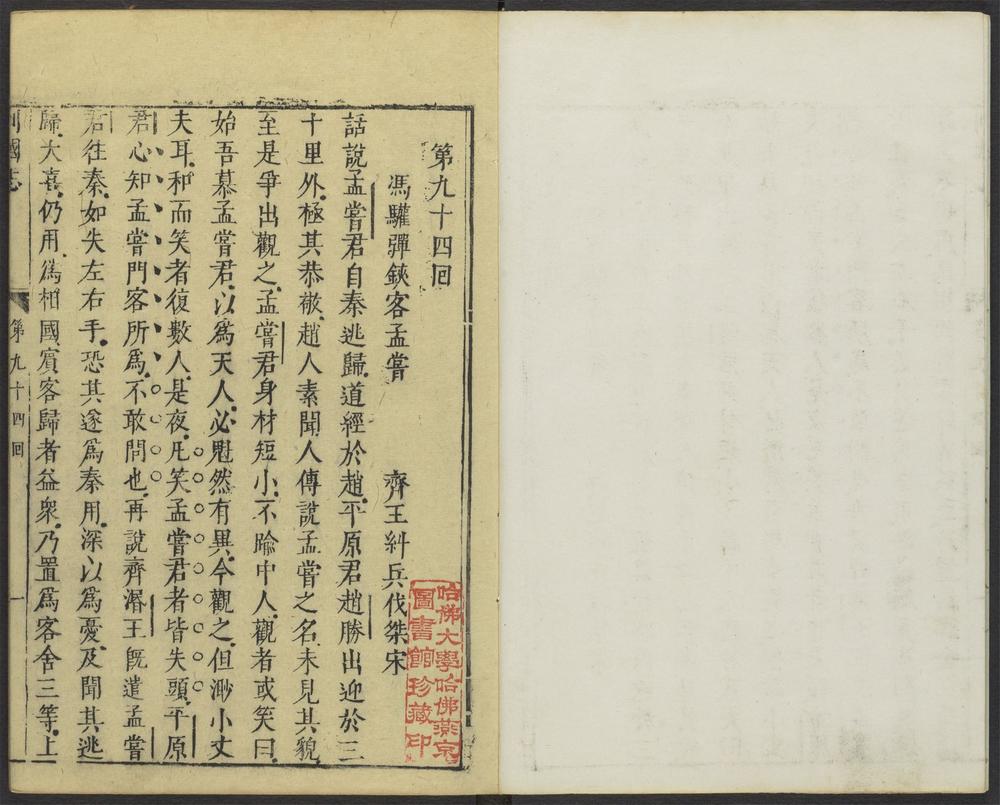 第九十四回
馮驩彈鋏客孟嘗　齊王糾兵伐桀宋
話說孟嘗君自秦逃歸道經於趙平原君趙勝出迎於三
十里外極其恭敬趙人素聞人傳說孟嘗之名未見其貌
至是爭出觀之孟嘗君身材短小不踰中人觀者或笑曰
始吾慕孟嘗君以爲天人必魁然有異今觀之但渺小丈
夫耳和而笑者復數人是夜凡笑孟嘗君者皆失頭平原
君心知孟嘗門客所爲不敢問也再說齊湣王既遣孟嘗
君往秦如失左右手恐其遂爲秦用深以爲憂及聞其逃
歸大喜仍用爲相國賓客歸者益衆乃置爲客舍三等上
列國志　第九十四回　一
哈佛大學哈佛燕京
圖書館珍藏印